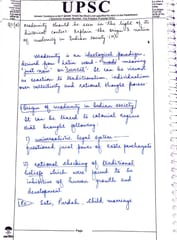 UPSC
Q1(a) Modernity should be seen in the light of its
historical context. Explain the origin & nature
of modernity in Indian Society (10)
Modernity is an ideological paradigm,
derived from latin word - "modo" meaning
"just now" or "recent". It can be viewed
as reaction to traditionalism, individualism
over collectivity and rational thought process
Origin of modernity in Indian society
It can be traced to colonial regime
that brought following
i) universalistic legal system -
questioned past power of caste panchayats
ii) rational checking of traditional
beliefs which were found to be
inhibitive of human growth and
development
Eg. Sati, Pardah, child marriage
Page